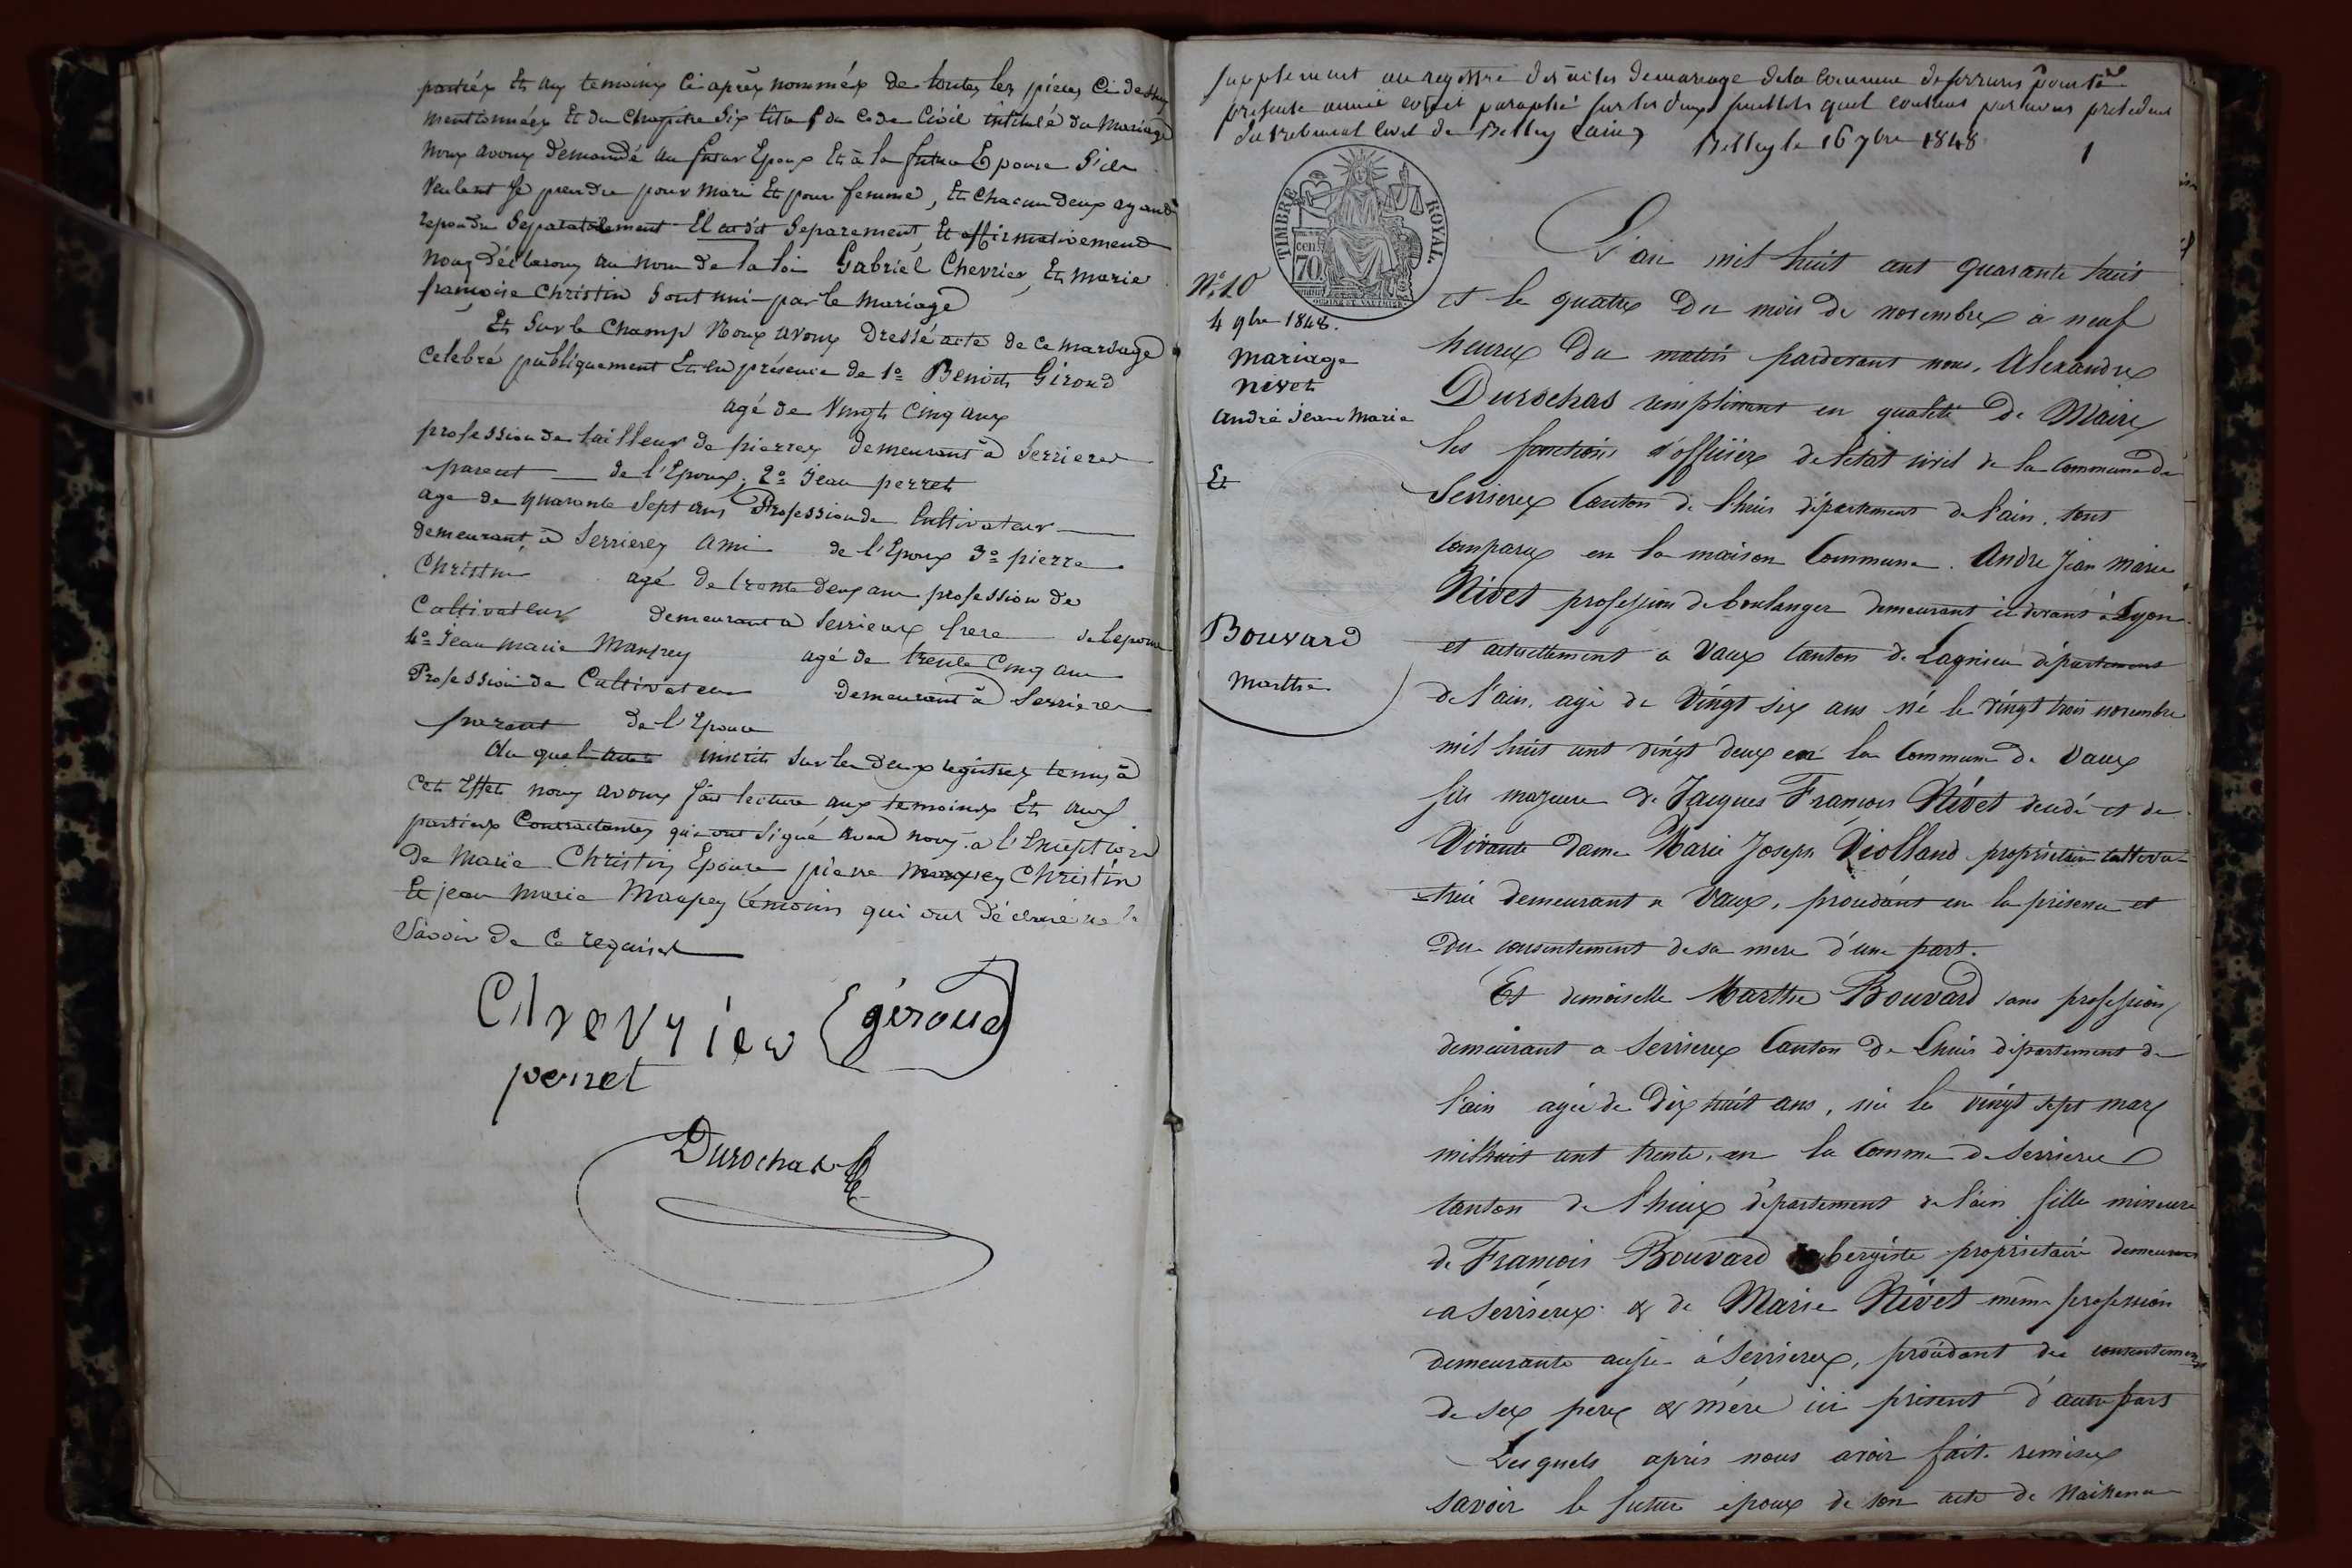 parties Et aux temoins Ci après nommés de toutes les pièces Ci dessus
mentionnées Et du Chapitre Six titre 5 du Code Civil intitulé du Mariage
Nous avons demandé au futur Epoux Et à la future Epouse S'ils
Veulent Se prendre pour Mari Et pour femme, Et Chacun deux ayant
repondu Separatement Et Separement Et affirmativement
Nous déclarons au nom de la loi Gabriel Chevrier Et Marie
françoise Christin Sont uni par le Mariage
Et Sur le Champ Nous avons Dressé acte de Ce mariage
Celebré publiquement Et En présence de 1º Benoit Giroud
agé de Vingt Cinq ans
profession de tailleur de pierres demeurant à Serrieres
parent de l'Epoux; 2º Jean perret
age de quarante Sept ans Profession de Cultivateur
demeurant à Serrieres ami de l'Epoux 3º pierre
Christin agé de trente deux ans profession de
Cultivateur demeurant à Serrieres frere de lepouse
4º Jean marie Manprey agé de trente Cinq ans
Profession de Cultivateur demeurant à Serrieres
parent de l'Epouse
du quel acte inscrit Sur les deux registres tenus à
Cet Effet nous avons fait lecture aux temoins Et aux
parties Contractantes qui ont Signé avec nous à l'Exeption
de Marie Christin Epouse pierre Christin
Et jean Marie temoins qui ont déclaré ne le
Savoir de Ce requis
Chevrier géroud
perret
Durochat
Supplement au registre des actes de mariage de la Commune de serrieres pour la
presente année coté et paraphé sur les deux feuillets quil contient par nous président
du tribunal civil de Belley (ain)
Belley le 16 7bre 1848
1
TIMBRE ROYAL
cen. 70
Nº 10
4 9bre 1848.
Mariage
Nivet
André Jean Marie
Et
Bouvard
Marthe
L'an mil huit cent quarante huit
et le quatre du mois de novembre à neuf
heures du matin pardevant nous, Alexandre
Durochat remplissant en qualité de Maire
les fonctions d'officier de letat civil de la Commune de
Serrieres Canton de Lhuis département de l'ain, sont
comparus en la maison Commune. André Jean Marie
Nivet profession de boulanger demeurant ci devant à Lyon
et actuellement a Vaux Canton de Lagnieu département
de l'ain, agé de vingt six ans né le vingt trois novembre
mil huit cent vingt deux en la Commune de Vaux
fils majeur de Jacques François Nivet decedé et de
Vivante dame Marie Joseph Violland propriétaire cultiva
trice demeurant a Vaux, procédant en la présence et
du consentement de sa mere d'une part.
Et demoiselle Marthe Bouvard sans profession
demeurant a Serrieres Canton de Lhuis département de
l'ain agée de Dix huit ans, née le vingt sept mars
mil huit cent trente, en la Comme de Serrieres
Canton de Lhuis département de l'ain fille mineure
de François Bouvard aubergiste propriétaire demeurant
a Serrieres & de Marie Nivet même profession
demeurante aussi à Serrieres, procédant du consentement
de ses pere & mére ici présent d'autre part
Lesquels après nous avoir fait remises
savoir le futur epoux de son acte de Naissance